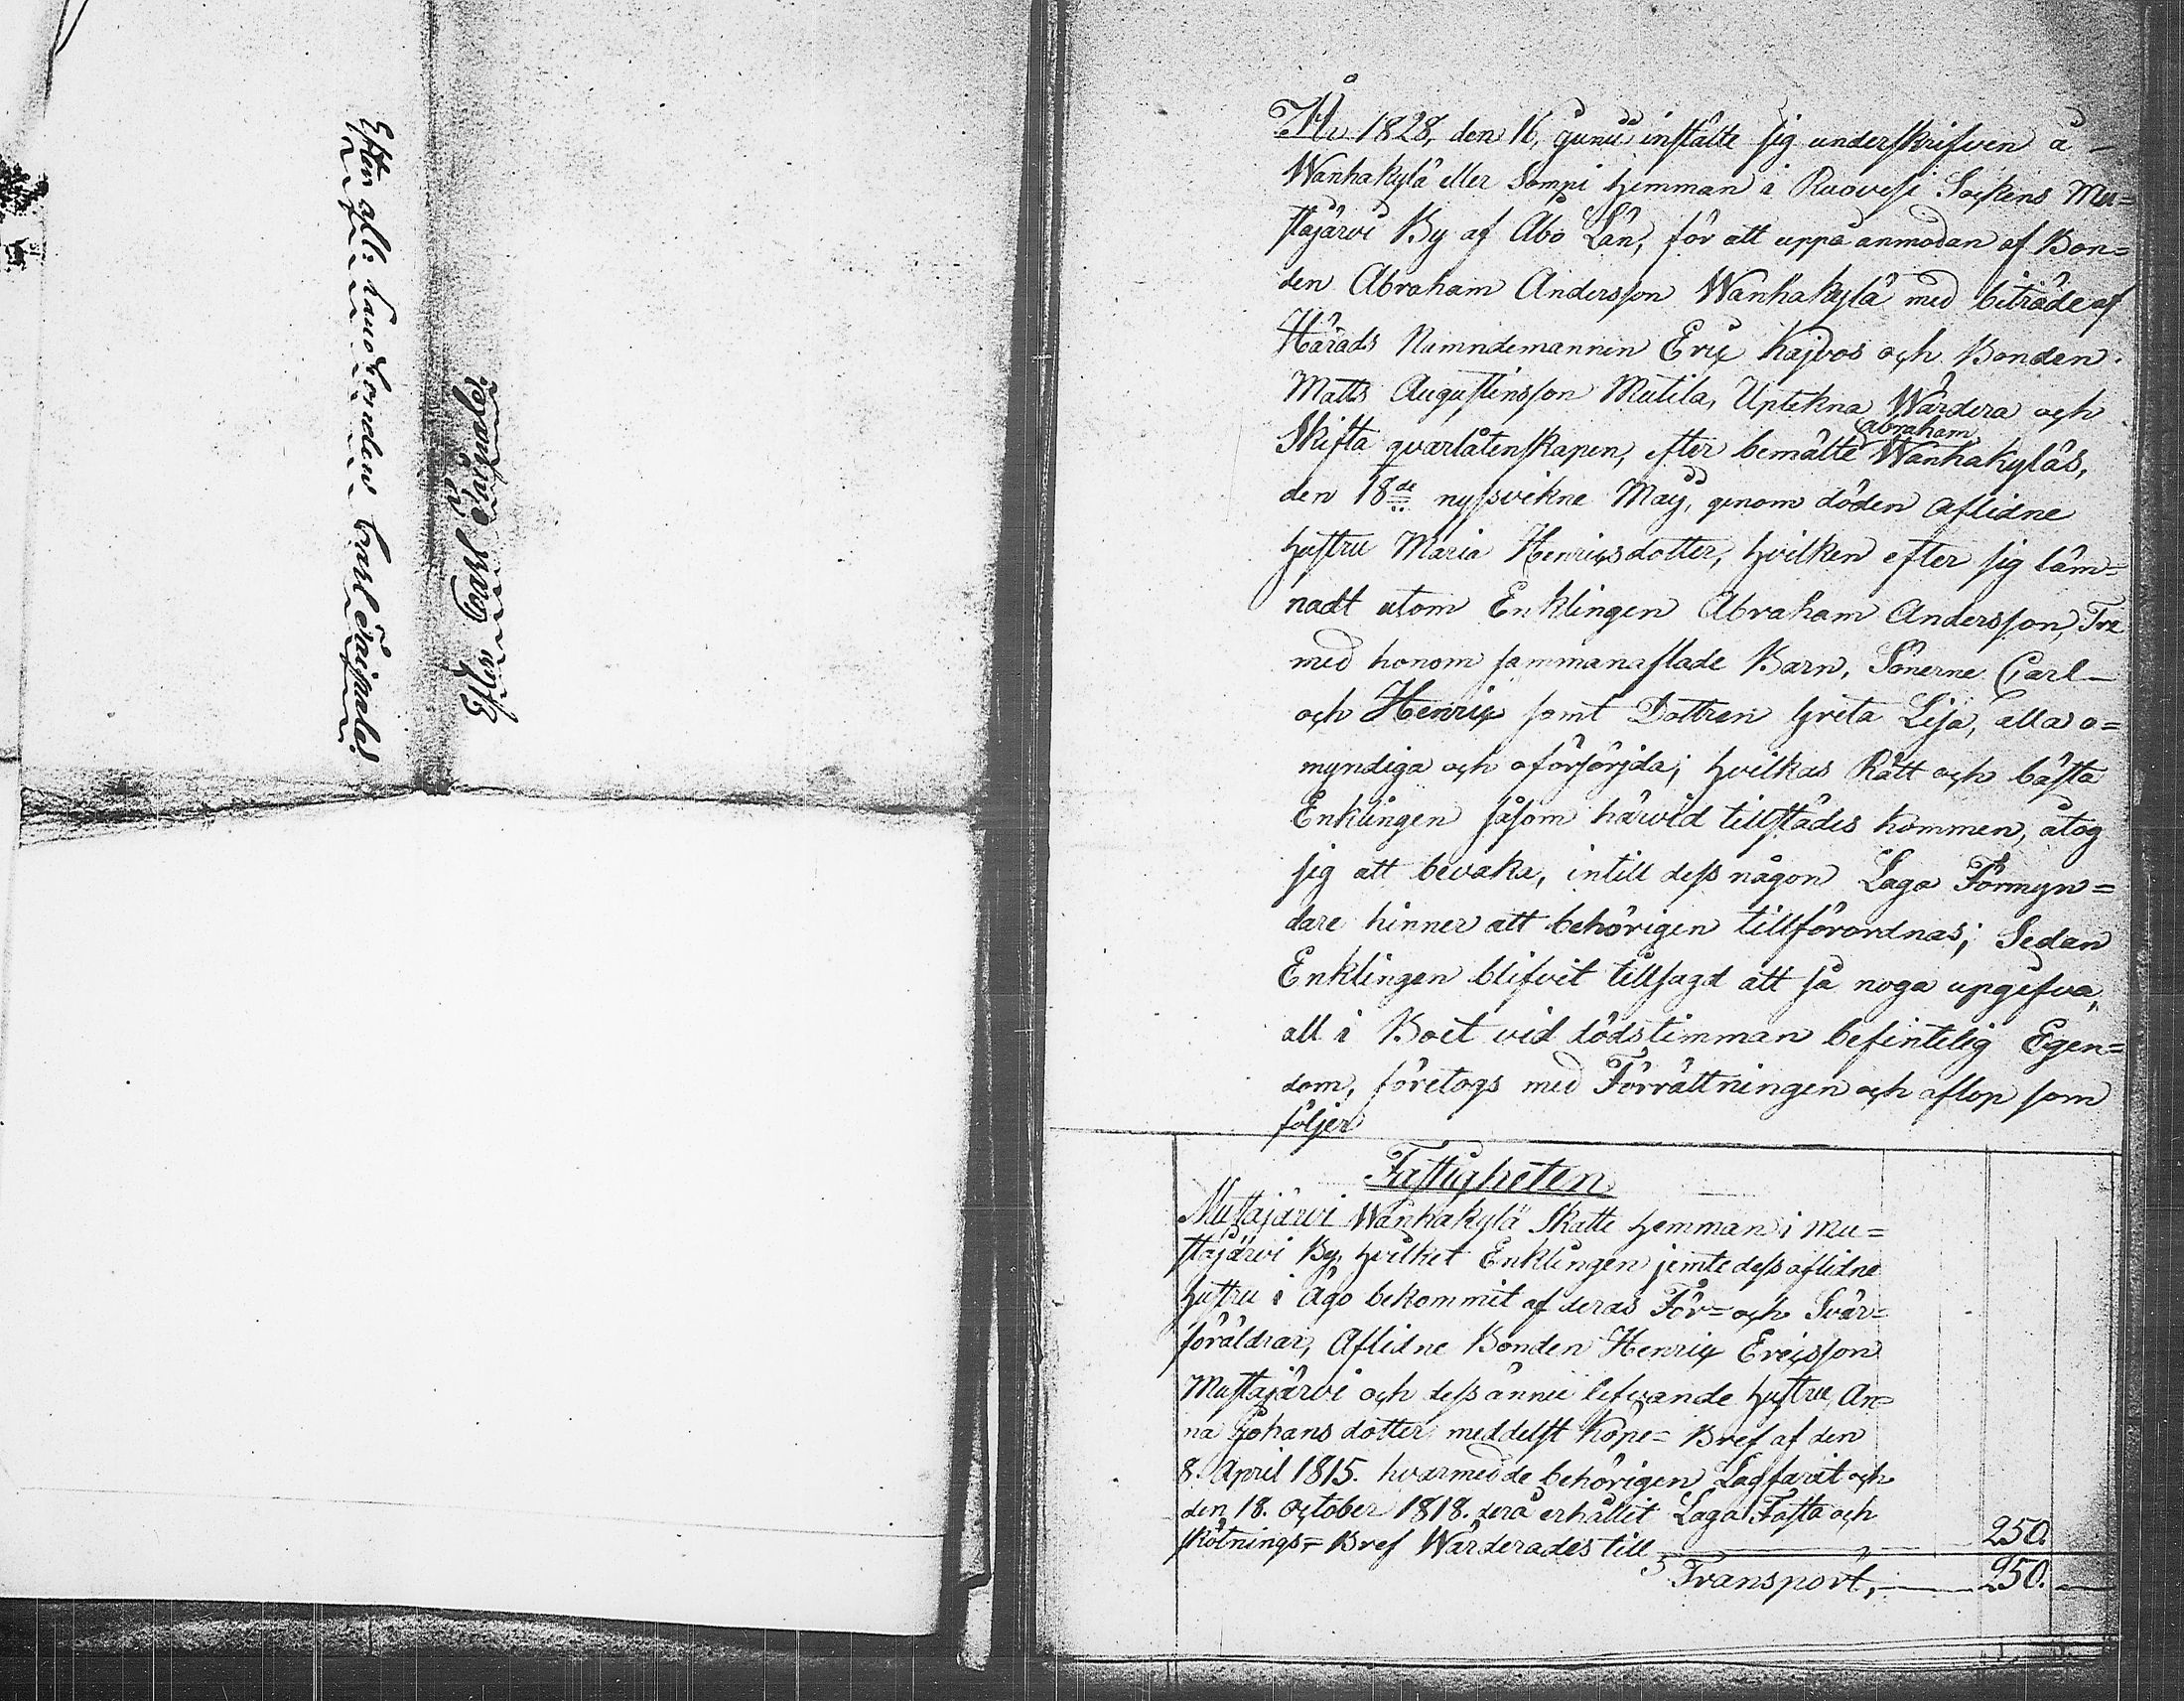 Efter afl: Landbonden Carl Saipalas
Efter Carl Saipalas
År 1828, den 16, Junii instälte sig underskrifven å
Wanhakylä eller Sompi hemman i Ruovesi Sockens Mu=
stajärvi By af Åbo Län, för att uppå anmodan af Bon=
den Abraham Andersson Wanhakylä med biträde af
Härads Nämndemannen Eric Kajvos och Bonden
Matts Augustinsson Mutila, Uptekna, Wärdera och
Skifta qvarlåtenskapen, efter bemälte Abraham Wanhakyläs,
den 18de nyssvikne Maij, genom döden aflidne
hustru Maria Henricsdotter, hvilken efter sig läm=
nadt utom Enklingen Abraham Andersson, Tre
med honom sammanaflade Barn, Sönerne Carl
och Henric samt Dottren Greta Lisa, alla o=
myndiga och oförsörjda; hvilkas Rätt och bästa
Enklingen såsom härvid tillstädes kommen, åtog
sig att bevaka, intill dess någon Laga Förmyn=
dare hinner att behörigen tillförordnas; Sedan
Enklingen blifvit tillsagd att så noga upgifva,
all i Boet vid dödstimman befintelig Egen=
dom, företogs med Förrättningen och aflop som
följer
Fastigheten
Mustajärvi Wanhakylä Skatte hemman i Mu=
stajärvi By, hvilket Enklingen jemte dess aflidne
hustru i ägo bekommit af deras För= och Svär=
föräldrar, Aflidne Bonden Henric Ericsson
Mustajärvi och dess ännu lefvande hustru An=
na Johans dotter meddelst Köpe= Bref af den
8. April 1815. hvarmed de behörigen Lagfarit och
den 18. October 1818. derå erhållit Laga Fasta och
skötnings= Bref Wärderades till 250.
Transport, 250.